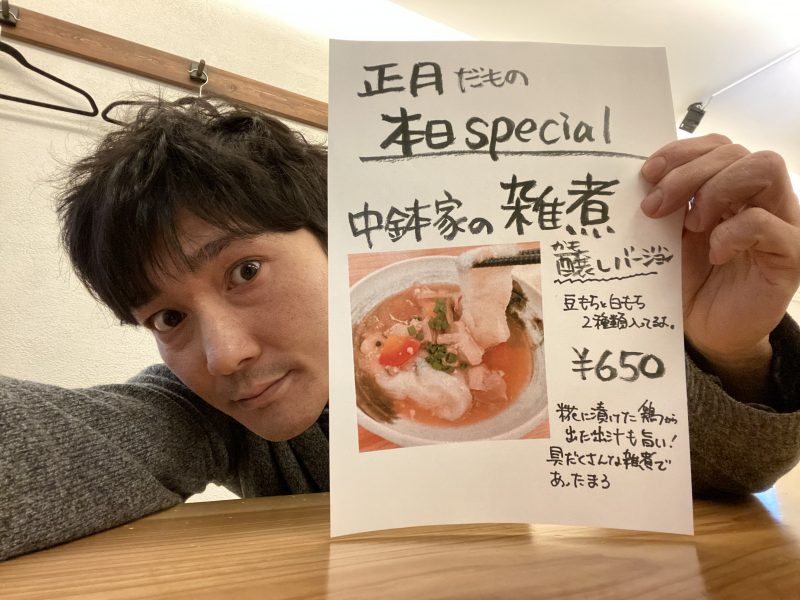 正月だもの
本日special
中鉢家の雑煮
かも
醸しバージョン
豆もちと白もち
2種類入ってるよ。
¥650
糀に漬けた鶏から
出た出汁も旨い!
具だくさんな雑煮で
あったまろ